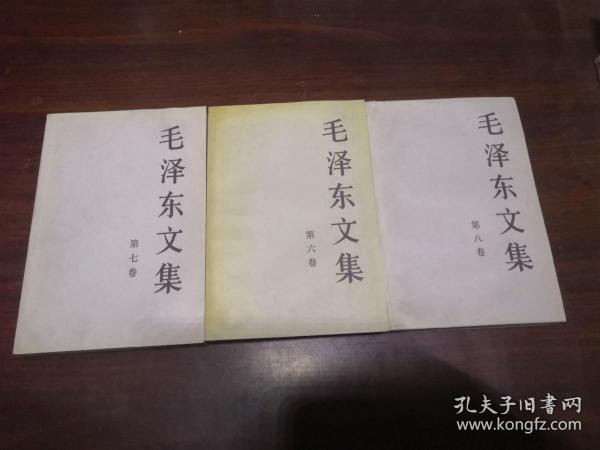 毛泽东文集
第七卷
毛泽东文集
第六卷
毛泽东文集
第八卷
孔夫子旧書网
www.kongfz.com